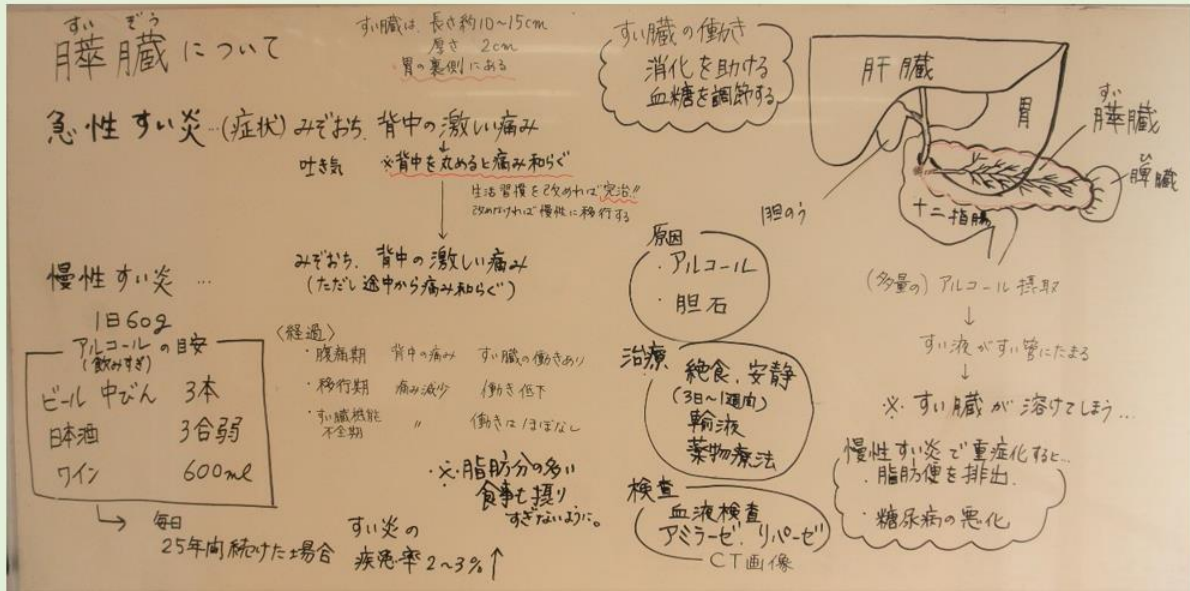 すい ぞう
膵臓について
すい臓は、長さ約10~15cm
厚さ 2cm
胃の裏側にある
すい臓の働き
消化を助ける
血糖を調節する
肝臓
胃
すい
膵臓
ひ
脾臓
胆のう
十二指腸
急性すい炎…(症状)みぞおち、背中の激しい痛み
吐き気 ※背中を丸めると痛み和らぐ
生活習慣を改めれば完治!!
改めなければ慢性に移行する
慢性すい炎…
みぞおち、背中の激しい痛み
(ただし途中から痛み和らぐ)
1日60g
アルコールの目安
(飲みすぎ)
ビール 中びん 3本
日本酒 3合弱
ワイン 600ml
→ 毎日
25年間続けた場合
すい炎の
疾患率2~3%↑
〈経過〉
・腹痛期 背中の痛み すい臓の働きあり
・移行期 痛み減少 働き低下
・すい臓機能
不全期 〃 働きはほぼなし
・※・脂肪分の多い
食事も摂り
すぎないように。
原因
・アルコール
・胆石
治療
絶食、安静
(3日~1週間)
輸液
薬物療法
検査
血液検査
アミラーゼ、リパーゼ
CT画像
(多量の)アルコール摂取
↓
すい液がすい管にたまる
↓
※すい臓が溶けてしまう…
慢性すい炎で重症化すると…
・脂肪便を排出.
・糖尿病の悪化